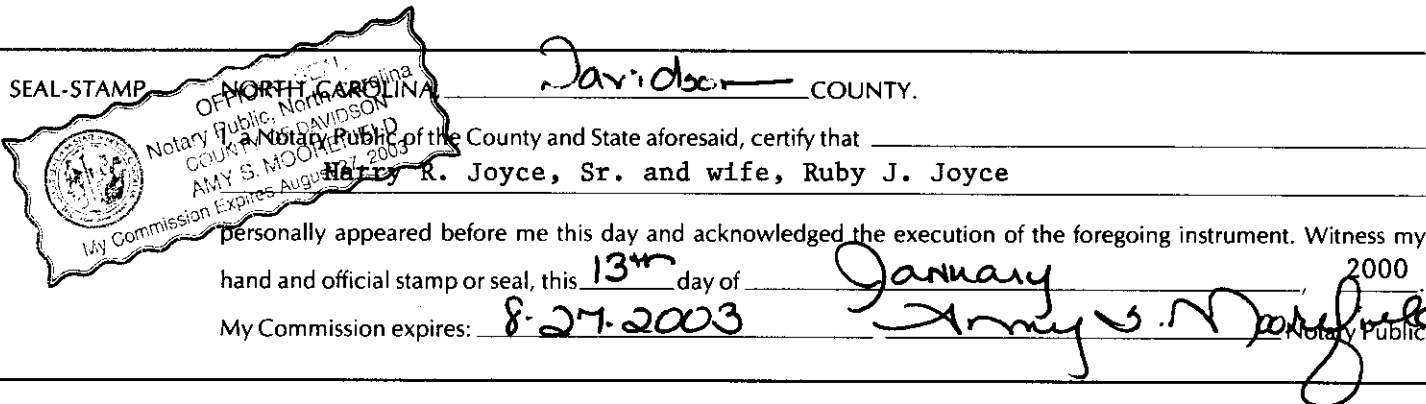 SEAL-STAMP NORTH CAROLINA, Davidson COUNTY.
OFFICIAL SEAL
Notary Public, North Carolina
COUNTY OF DAVIDSON
AMY S. MOOREFIELD
My Commission Expires August 27, 2003
I, a Notary Public of the County and State aforesaid, certify that
Harry R. Joyce, Sr. and wife, Ruby J. Joyce
personally appeared before me this day and acknowledged the execution of the foregoing instrument. Witness my
hand and official stamp or seal, this 13th day of January, 2000.
My Commission expires: 8-27-2003 Amy S. Moorefield Notary Public